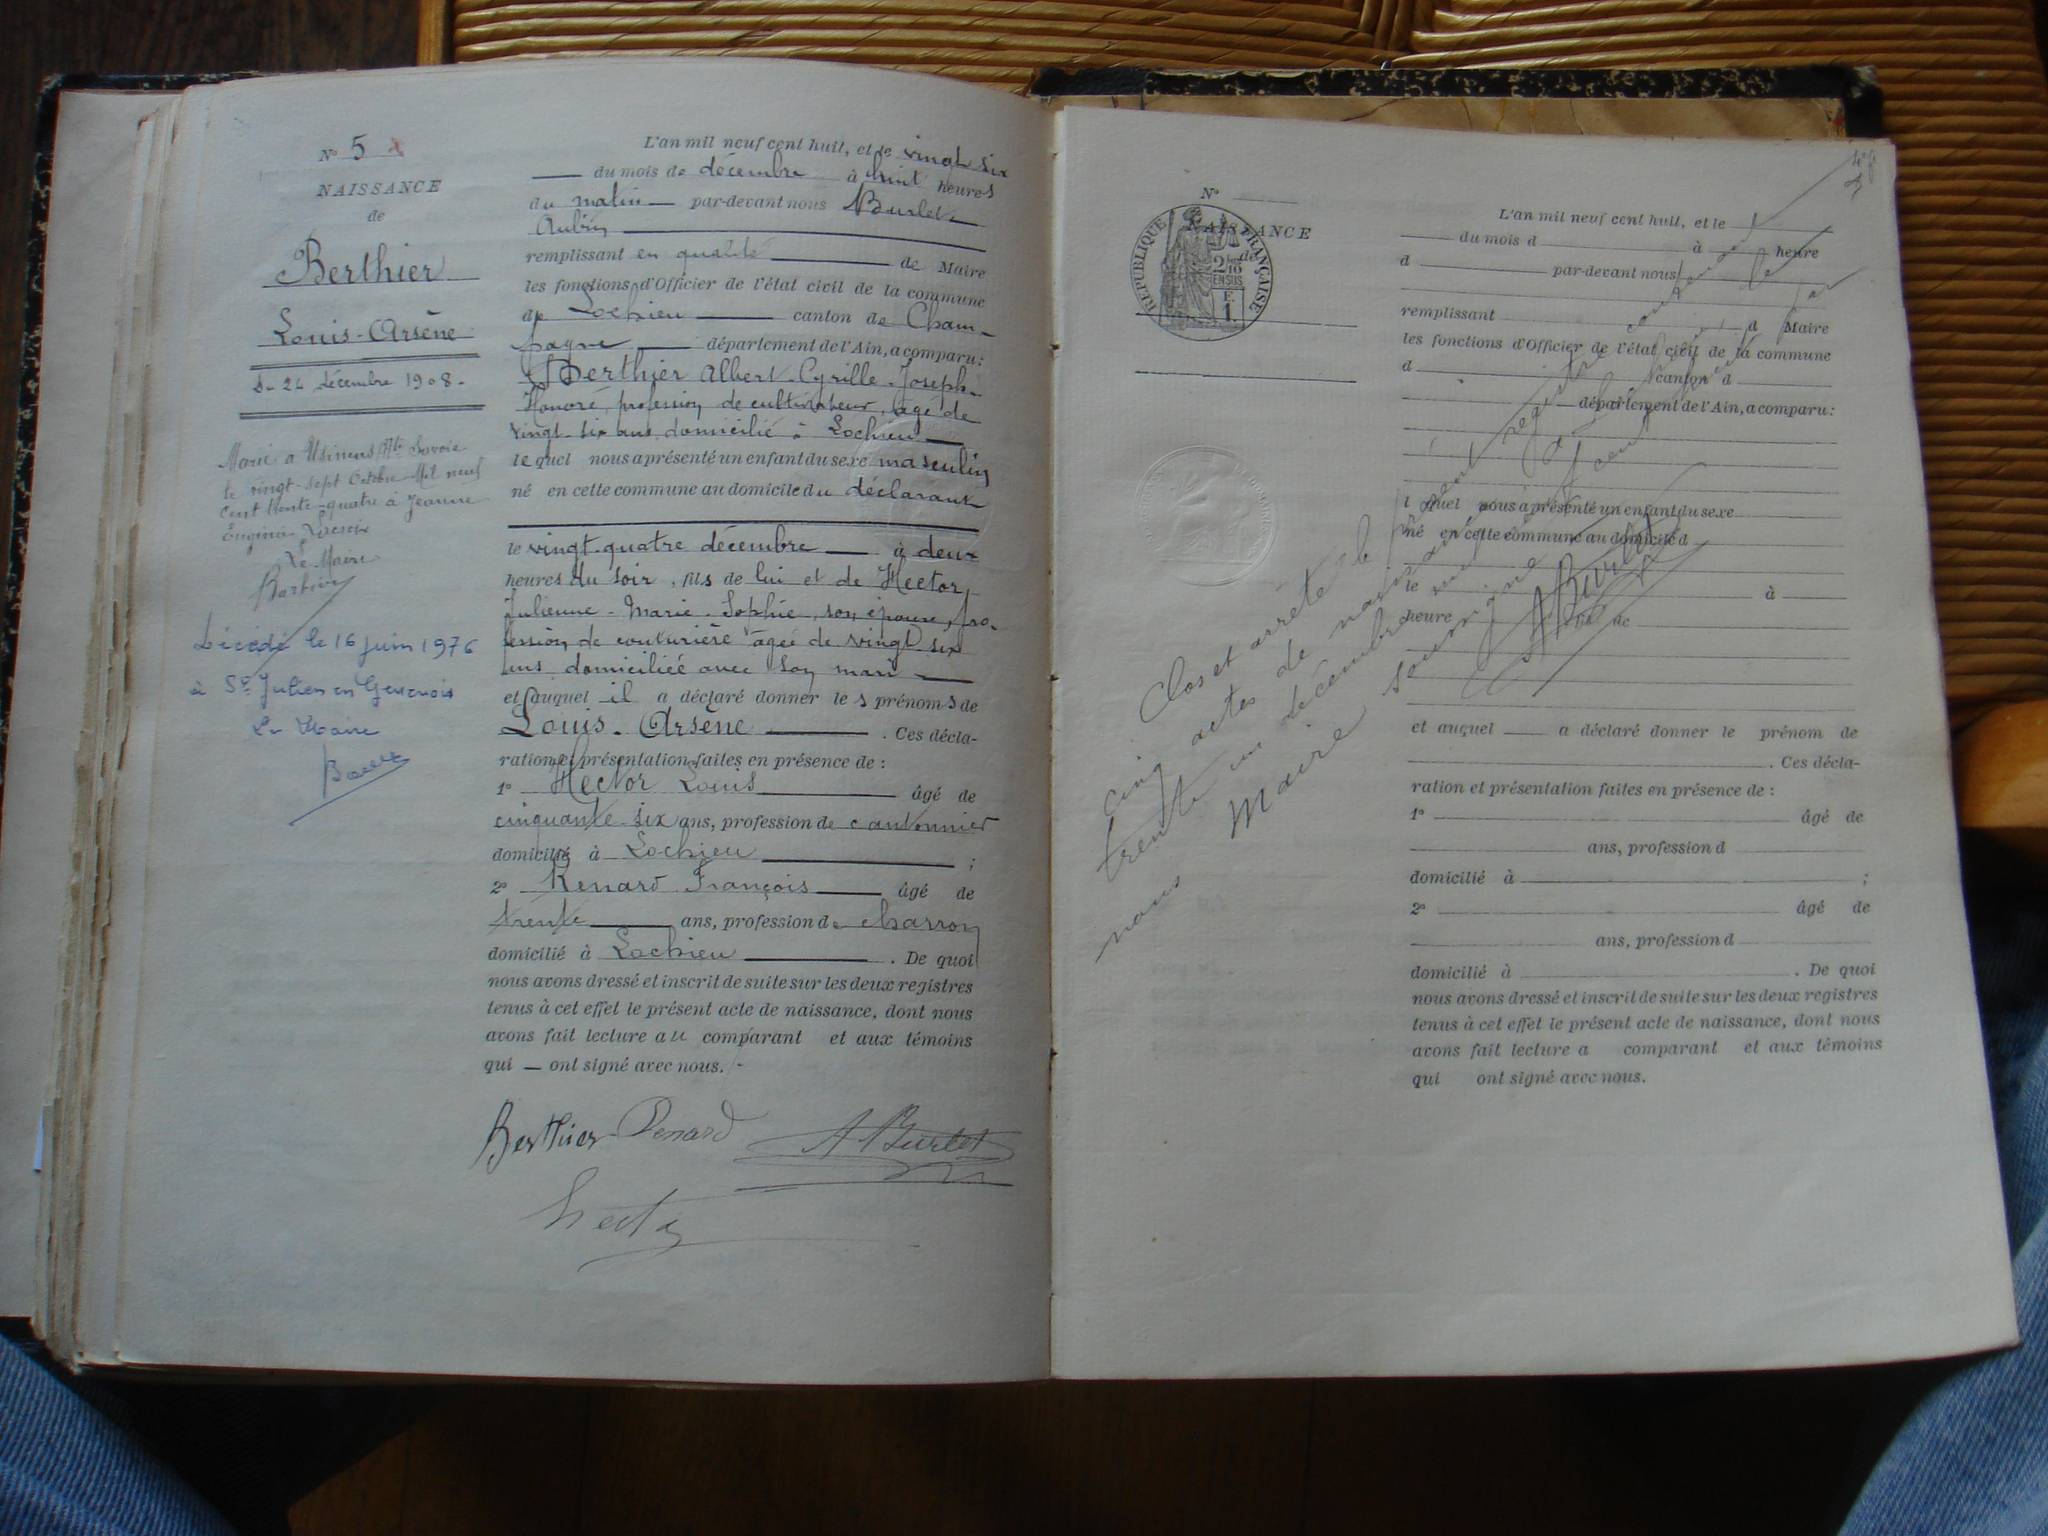 N° 5
NAISSANCE
de
Berthier
Louis-Arsène
Du 24 décembre 1908.
Marié à Usinens Hte Savoie
le vingt-sept Octobre Mil neuf
cent trente-quatre à Jeanne
Eugénie Lacroix
Le Maire
Décédé le 16 juin 1976
à St Julien en Genevois
Le Maire
L'an mil neuf cent huit, et le vingt six
du mois de décembre à huit heures
du matin par-devant nous Burlet
Aubin
remplissant en qualité de Maire
les fonctions d'Officier de l'état civil de la commune
de Lochieu canton de Cham-
pagne département de l'Ain, a comparu:
Berthier Albert-Cyrille-Joseph-
Honoré, profession de cultivateur, âgé de
vingt-six ans, domicilié à Lochieu
lequel nous a présenté un enfant du sexe masculin
né en cette commune au domicile du déclarant
le vingt-quatre décembre à deux
heures du soir, fils de lui et de Hector
Julienne-Marie-Sophie, son épouse, pro-
fession de couturière âgée de vingt six
ans domiciliée avec son mari
et auquel il a déclaré donner les prénoms de
Louis-Arsène. Ces décla-
ration et présentation faites en présence de:
1° Hector Louis âgé de
cinquante-six ans, profession de cantonnier
domicilié à Lochieu;
2° Renard François âgé de
trente ans, profession de charron
domicilié à Lochieu. De quoi
nous avons dressé et inscrit de suite sur les deux registres
tenus à cet effet le présent acte de naissance, dont nous
avons fait lecture au comparant et aux témoins
qui ont signé avec nous.
Berthier Renard A Burlet
Hector
N°
NAISSANCE
de
RÉPUBLIQUE FRANÇAISE
2/10
EN SUS
F.
1.
L'an mil neuf cent huit, et le
du mois d à heure
d par-devant nous
remplissant d Maire
les fonctions d'Officier de l'état civil de la commune
d canton d
département de l'Ain, a comparu:
l quel nous a présenté un enfant du sexe
né en cette commune au domicile d
le à
heure
et auquel a déclaré donner le prénom de
. Ces décla-
ration et présentation faites en présence de:
1° âgé de
ans, profession d
domicilié à ;
2° âgé de
ans, profession d
domicilié à . De quoi
nous avons dressé et inscrit de suite sur les deux registres
tenus à cet effet le présent acte de naissance, dont nous
avons fait lecture a comparant et aux témoins
qui ont signé avec nous.
Clos et arrêté le présent registre contenant
cinq actes de naissance
trente un décembre mil neuf cent huit par
nous Maire soussigné
A Burlet